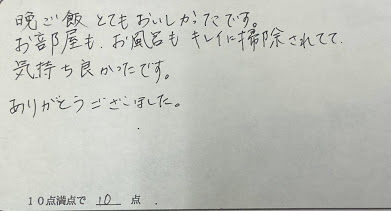 晩ご飯とてもおいしかったです。
お部屋も、お風呂もキレイに掃除されてて、
気持ち良かったです。
ありがとうございました。
10点満点で 10 点.